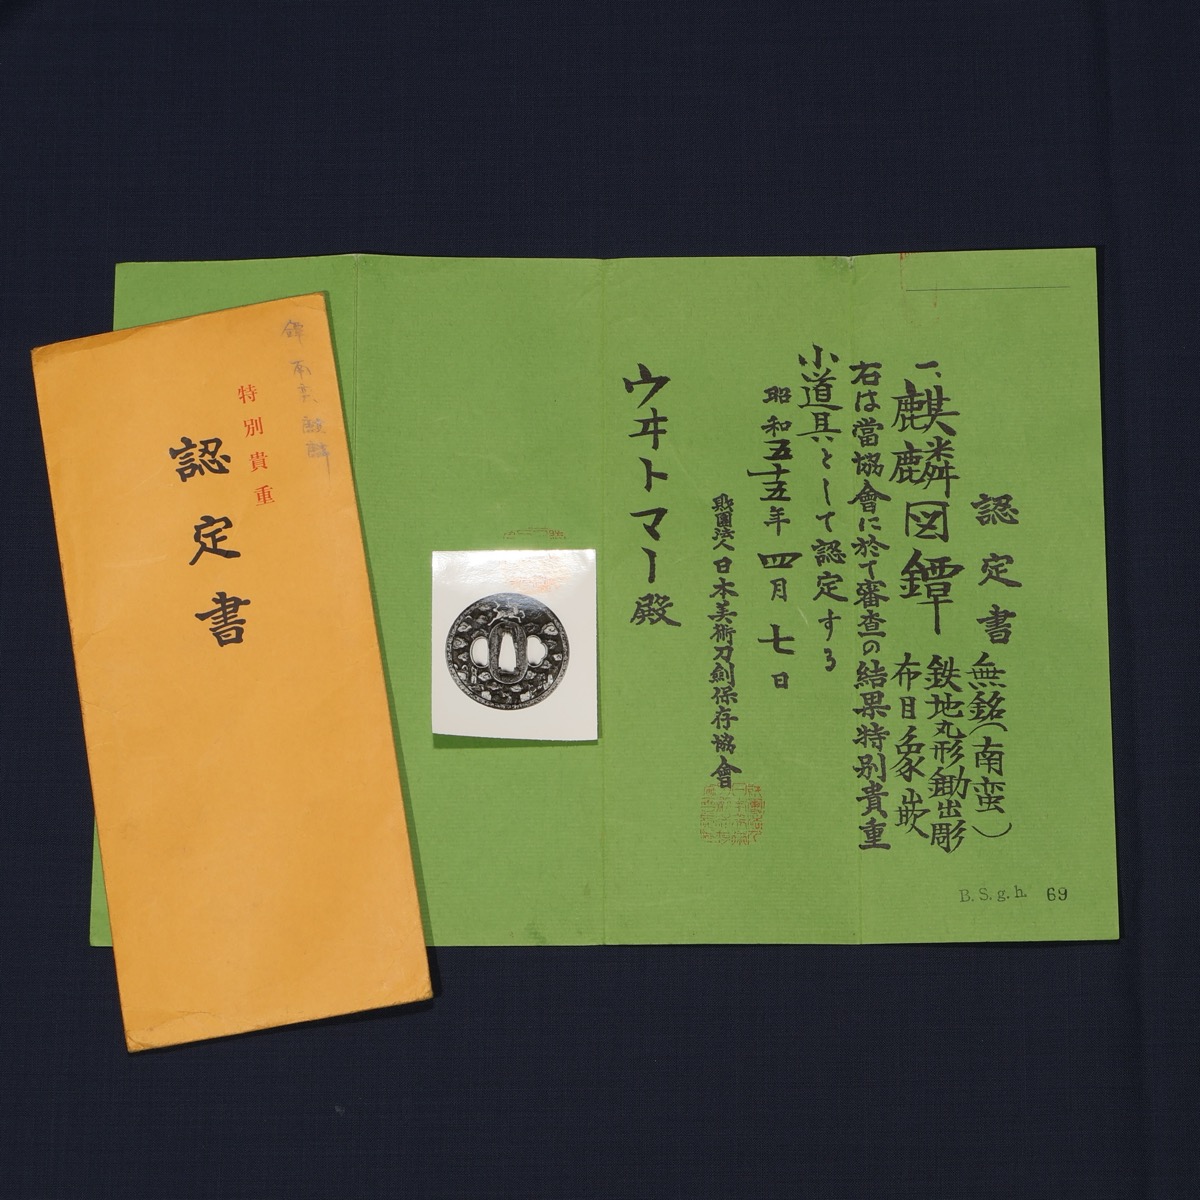 認定書
一、麒麟図鐔
無銘(南蛮)
鉄地丸形鋤出彫
布目象嵌
右は當協會に於て審査の結果特別貴重
小道具として認定する
昭和五十五年四月七日
財團法人日本美術刀劍保存協會
ウヰトマー殿
B. S. g. h. 69
鐔 南蛮 麒麟
特別貴重
認定書